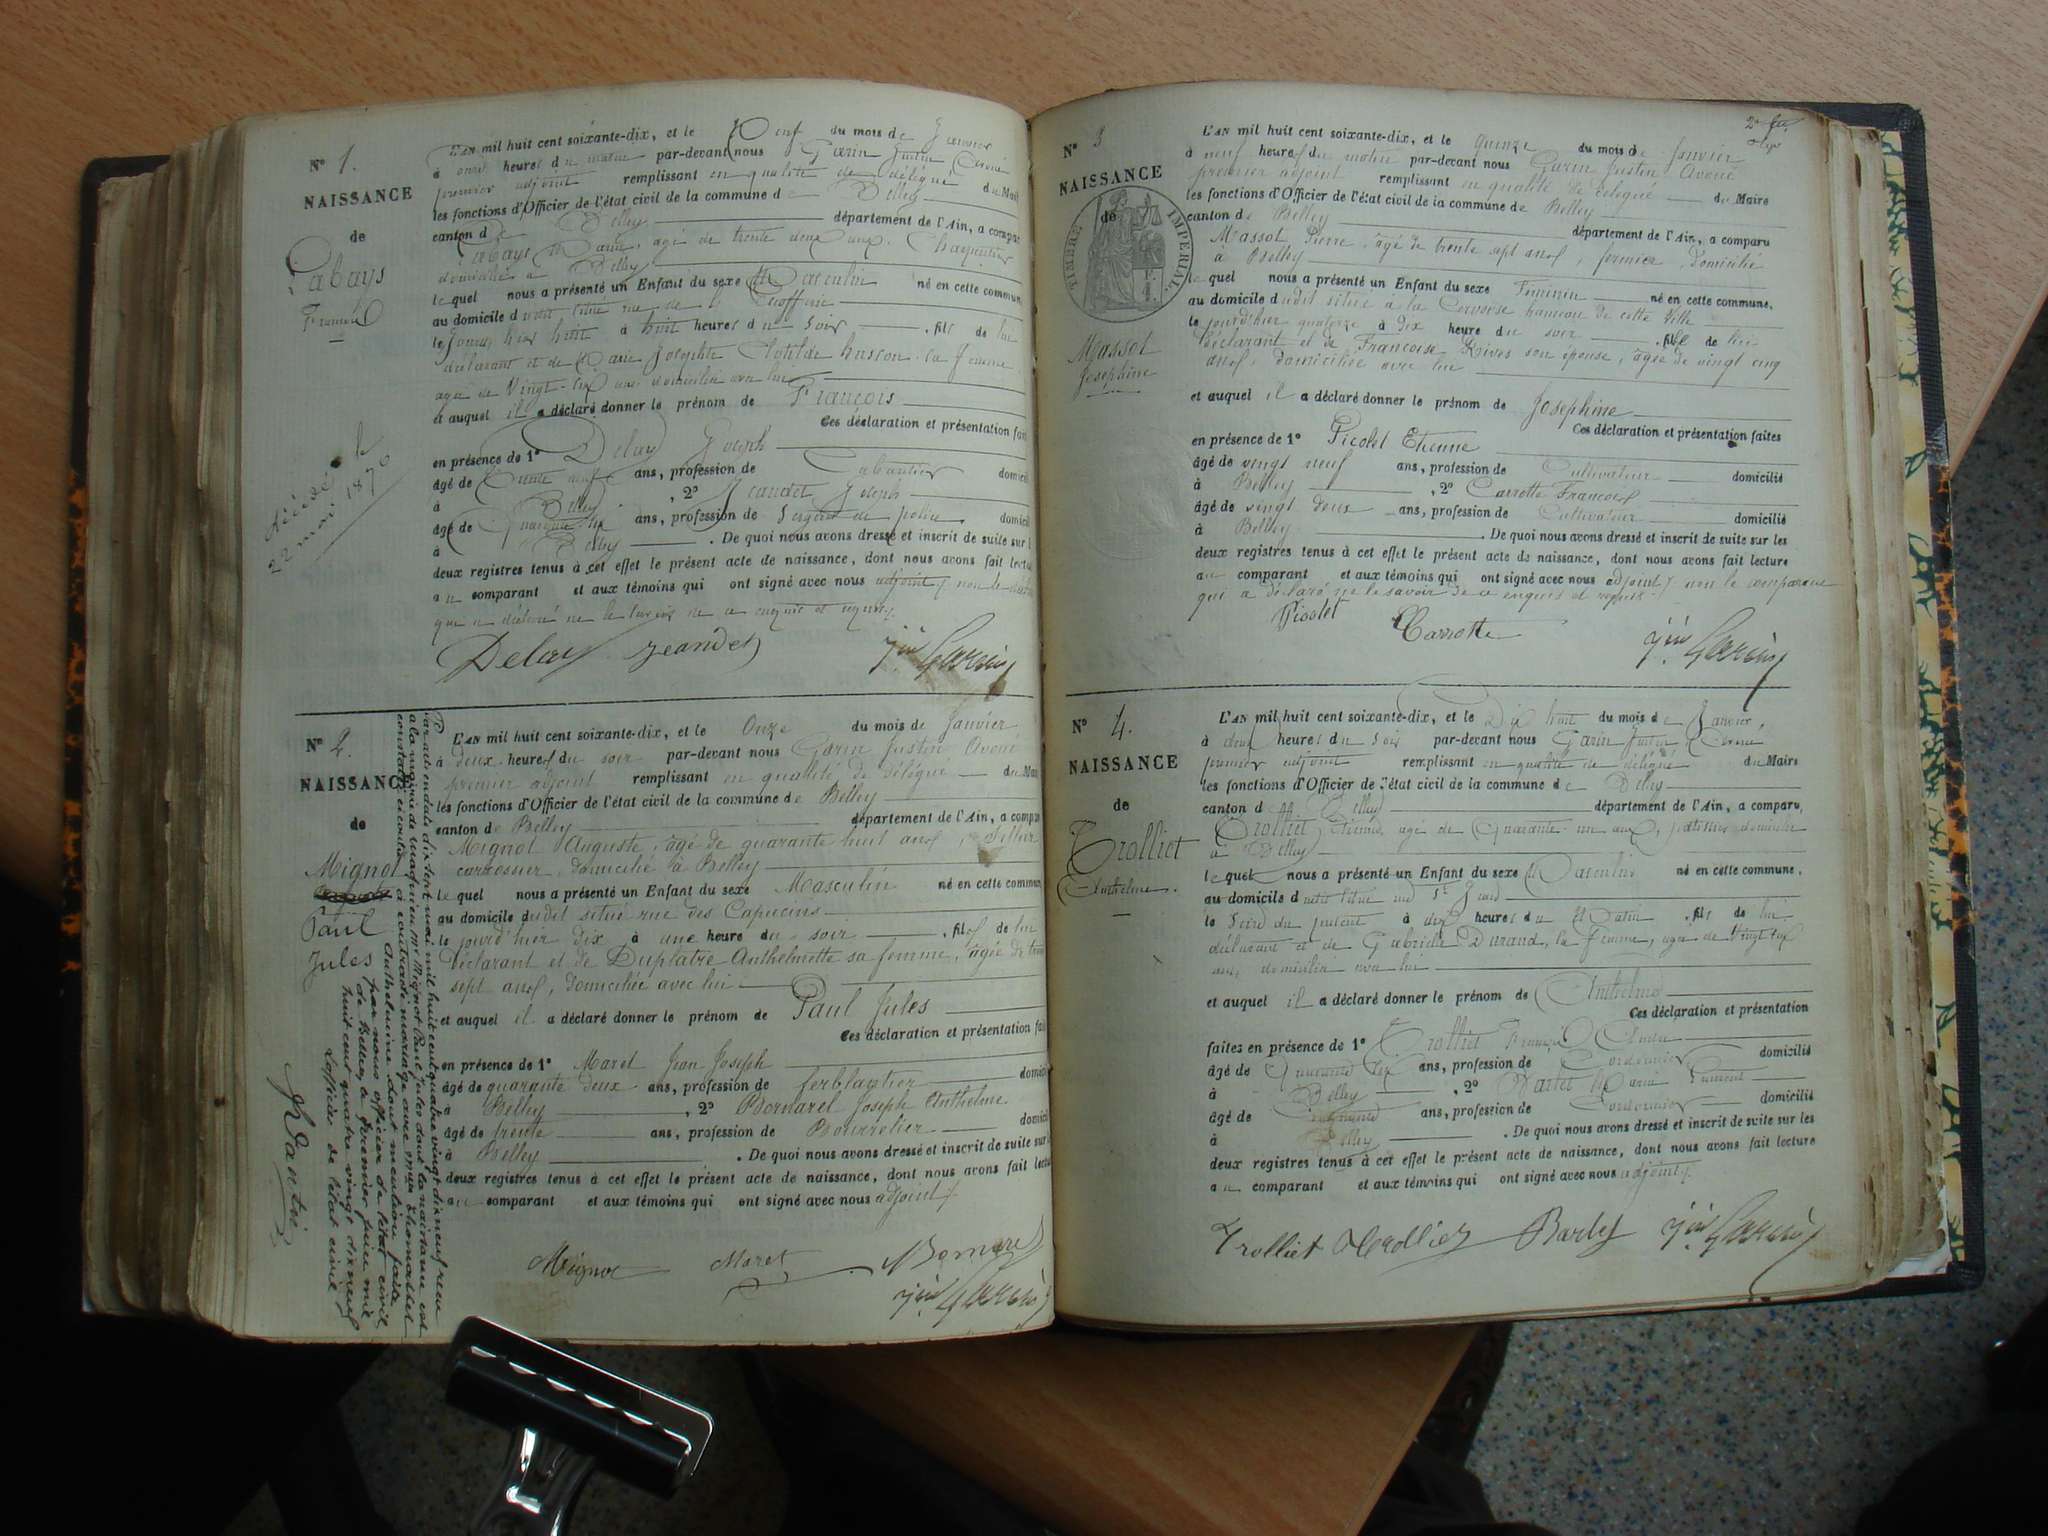 N° 1.
NAISSANCE
de
Cabays
François
décédé le
22 mai 1870
L'AN mil huit cent soixante-dix, et le Neuf du mois de Janvier
à onze heures du matin par-devant nous Garin Justin Avoué
premier adjoint remplissant en qualité de délégué du Maire
les fonctions d'Officier de l'état civil de la commune de Belley
canton de Belley département de l'Ain, a comparu
Cabays Marie, agé de trente deux ans, Charpentier
domicilié à Belley
lequel nous a présenté un Enfant du sexe Masculin né en cette commune
au domicile dudit situé rue de
le jourd'hier huit à huit heures du soir, fils de lui
déclarant et de Marie Josephte Clotilde husson sa femme,
agée de Vingt-six ans domiciliée avec lui
et auquel il a déclaré donner le prénom de François
Ces déclaration et présentation faites
en présence de 1° Delay Joseph
âgé de trente neuf ans, profession de Cabaretier domicilié
à Belley, 2° Jeandet Joseph
âgé de Quarante six ans, profession de Sergent de police domicilié
à Belley. De quoi nous avons dressé et inscrit de suite sur l
deux registres tenus à cet effet le présent acte de naissance, dont nous avons fait lecture
au comparant et aux témoins qui ont signé avec nous adjoint, non le
qui a déclaré ne le savoir de ce enquis et requis.
Delay Jeandet Jin Garin
N° 2.
NAISSANCE
de
Mignot
Paul
Jules
Par acte en date du sept mai mil huit cent quatre vingt dix neuf reçu
à la mairie de Mr Mignot Paul Jules dont la naissance est
constatée ci contre à contracté mariage avec Mlle Thomasset
Anthelmine dont mention faite
par nous officier de l'état civil
de Belley, le premier juin mil
huit cent quatre vingt dix neuf
L'officier de l'état civil
L'AN mil huit cent soixante-dix, et le Onze du mois de Janvier
à deux heures du soir par-devant nous Garin Justin Avoué
premier adjoint remplissant en qualité de délégué du Maire
les fonctions d'Officier de l'état civil de la commune de Belley
canton de Belley département de l'Ain, a comparu
Mignot Auguste, âgé de quarante huit ans, Sellier
carrossier, domicilié à Belley
lequel nous a présenté un Enfant du sexe Masculin né en cette commune
au domicile dudit situé rue des Capucins
le jourd'hier dix à une heure du soir, fils de lui
déclarant et de Duplatre Anthelmette sa femme, âgée de trente
sept ans, domiciliée avec lui
et auquel il a déclaré donner le prénom de Paul Jules
Ces déclaration et présentation faites
en présence de 1° Maret Jean Joseph
âgé de quarante deux ans, profession de ferblantier domicilié
à Belley, 2° Bornarel Joseph Anthelme
âgé de trente ans, profession de Bourrelier domicilié
à Belley. De quoi nous avons dressé et inscrit de suite sur les
deux registres tenus à cet effet le présent acte de naissance, dont nous avons fait lecture
au comparant et aux témoins qui ont signé avec nous adjoint.
Mignot Maret Bornarel
Jin Garin
N° 3
NAISSANCE
de
TIMBRE IMPERIAL.
Massot
Josephine
L'AN mil huit cent soixante-dix, et le quinze du mois de Janvier
à neuf heures du matin par-devant nous Garin Justin Avoué
premier adjoint remplissant en qualité de délégué du Maire
les fonctions d'Officier de l'état civil de la commune de Belley
canton de Belley département de l'Ain, a comparu
Massot Pierre, âgé de trente sept ans, fermier, domicilié
à Belley
lequel nous a présenté un Enfant du sexe Féminin né en cette commune.
au domicile dudit situé à la hameau de cette Ville
le jourd'hier quatorze à dix heure du soir, fille de lui
déclarant et de Francoise Rives son épouse, âgée de vingt cinq
ans, domiciliée avec lui
et auquel il a déclaré donner le prénom de Josephine
Ces déclaration et présentation faites
en présence de 1° Picolet Etienne
âgé de vingt neuf ans, profession de Cultivateur domicilié
à Belley, 2° Carrotte Francois
âgé de vingt deux ans, profession de Cultivateur domicilié
à Belley. De quoi nous avons dressé et inscrit de suite sur les
deux registres tenus à cet effet le présent acte de naissance, dont nous avons fait lecture
au comparant et aux témoins qui ont signé avec nous adjoint, non le comparant
qui a déclaré ne le savoir de ce enquis et requis.
Picolet Carrotte Jin Garin
N° 4.
NAISSANCE
de
Trolliet
Anthelme.
L'AN mil huit cent soixante-dix, et le Dix huit du mois de Janvier,
à deux heures du soir par-devant nous Garin Justin Avoué
premier adjoint remplissant en qualité de délégué du Maire
les fonctions d'Officier de l'état civil de la commune de Belley
canton de Belley département de l'Ain, a comparu,
Trolliet Etienne, agé de Quarante un ans, domicilié
à Belley
lequel nous a présenté un Enfant du sexe Masculin né en cette commune,
au domicile dudit situé rue St Jean
le jour du présent à dix heures du Matin, fils de lui
déclarant et de Gabrielle Durand, sa femme, agée de Vingt six
ans, domiciliée avec lui
et auquel il a déclaré donner le prénom de Anthelme
Ces déclaration et présentation
faites en présence de 1° Trolliet François
âgé de Quarante six ans, profession de Cordonnier domicilié
à Belley, 2° Barlet Marie
âgé de Cinquante ans, profession de Cordonnier domicilié
à Belley. De quoi nous avons dressé et inscrit de suite sur les
deux registres tenus à cet effet le présent acte de naissance, dont nous avons fait lecture
au comparant et aux témoins qui ont signé avec nous adjoint.
Trolliet Trolliet Barlet Jin Garin